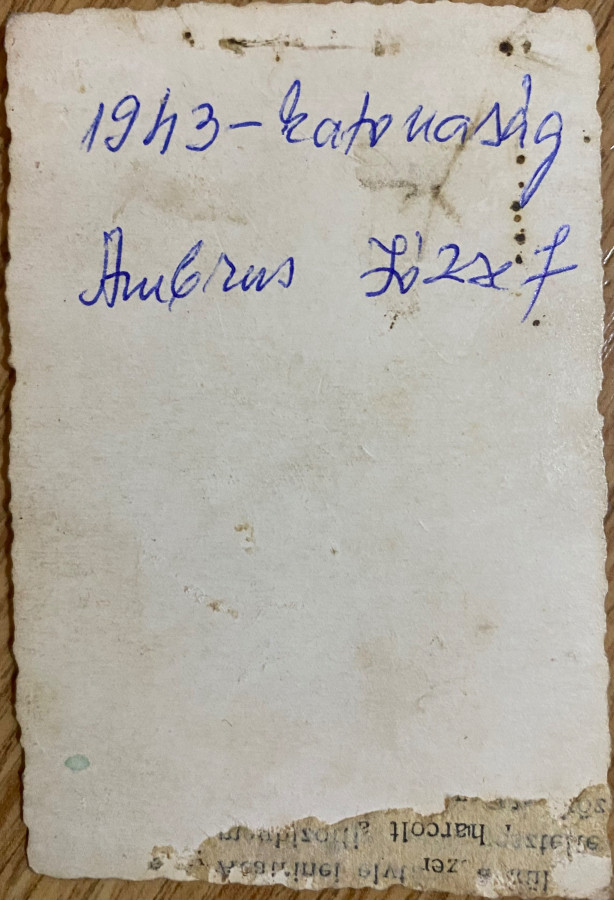 1943 - katonaság
Ambrus József
harcolt